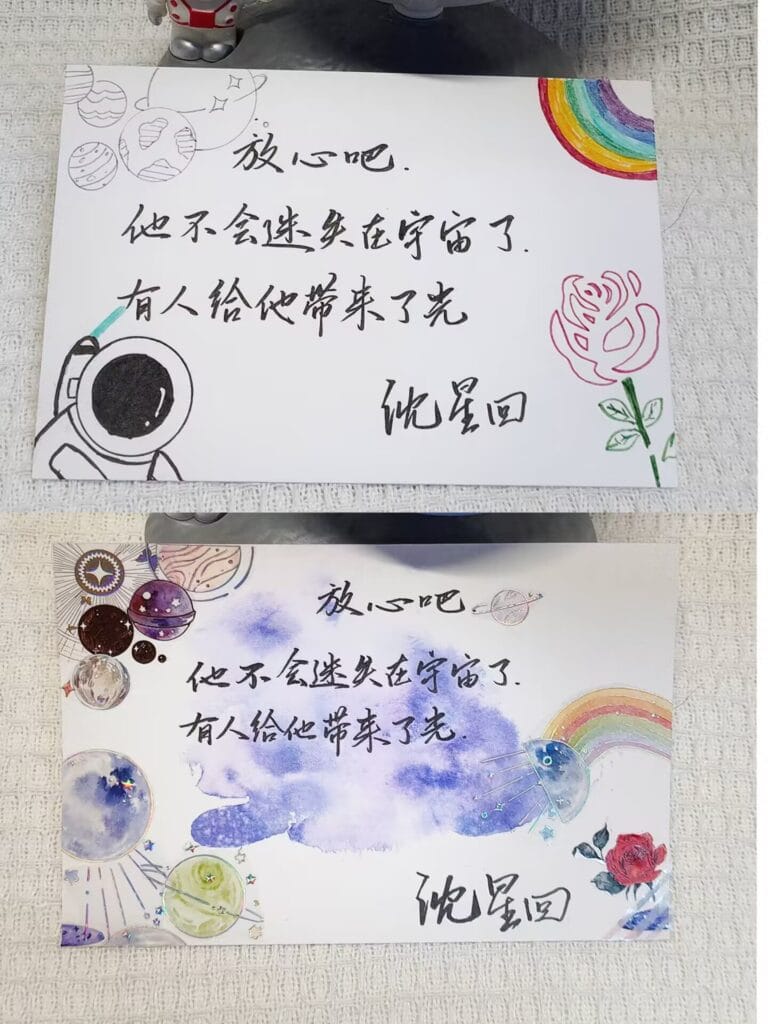 放心吧.
他不会迷失在宇宙了.
有人给他带来了光
沈星回
放心吧
他不会迷失在宇宙了.
有人给他带来了光.
沈星回